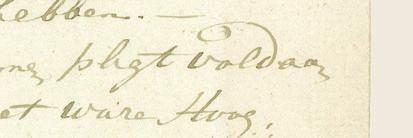 hebben. —
pligt voldaan
et ware Hoog,